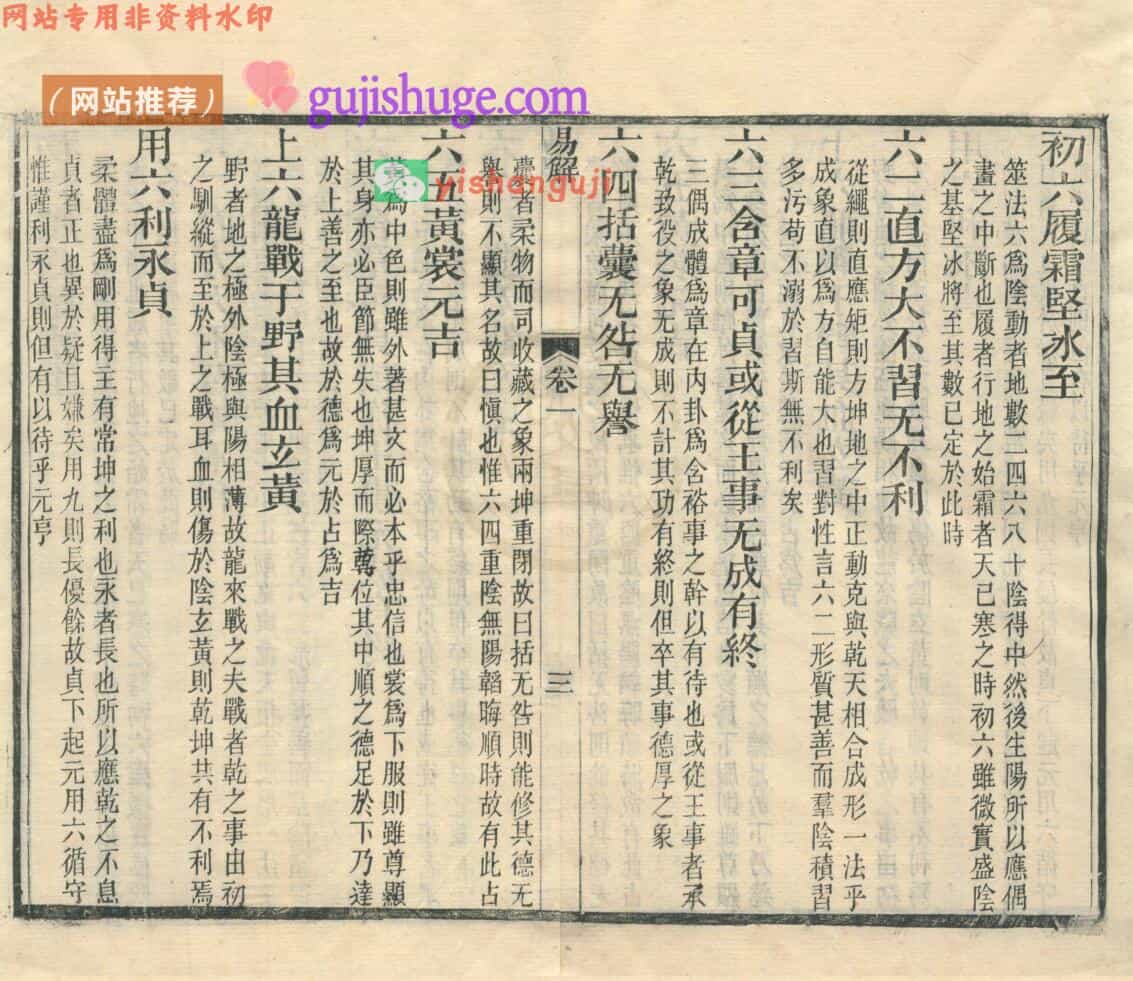 网站专用非资料水印
（网站推荐）
gujishuge.com
yishanguji
初六履霜堅氷至
筮法六爲陰動者地數二四六八十陰得中然後生陽所以應偶
畫之中斷也履者行地之始霜者天已寒之時初六雖微實盛陰
之基堅冰將至其數已定於此時
六二直方大不習无不利
從繩則直應矩則方坤地之中正動克與乾天相合成形一法乎
成象直以爲方自能大也習對性言六二形質甚善而羣陰積習
多污苟不溺於習斯無不利矣
六三含章可貞或從王事无成有終
三偶成體爲章在内卦爲含裕事之幹以有待也或從王事者承
乾致役之象无成則不計其功有終則但卒其事德厚之象
六四括囊无咎无譽
易解
卷一
三
囊者柔物而司收藏之象兩坤重閉故曰括无咎則能修其德无
譽則不顯其名故曰慎也惟六四重陰無陽韜晦順時故有此占
六五黃裳元吉
爲中色則雖外著甚文而必本乎忠信也裳爲下服則雖尊顯
其身亦必臣節無失也坤厚而際乾位其中順之德足於下乃達
於上善之至也故於德爲元於占爲吉
上六龍戰于野其血玄黃
野者地之極外陰極與陽相薄故龍來戰之夫戰者乾之事由初
之馴縱而至於上之戰耳血則傷於陰玄黃則乾坤共有不利焉
用六利永貞
柔體盡爲剛用得主有常坤之利也永者長也所以應乾之不息
貞者正也異於疑且嫌矣用九則長優餘故貞下起元用六循守
惟謹利永貞則但有以待乎元亨